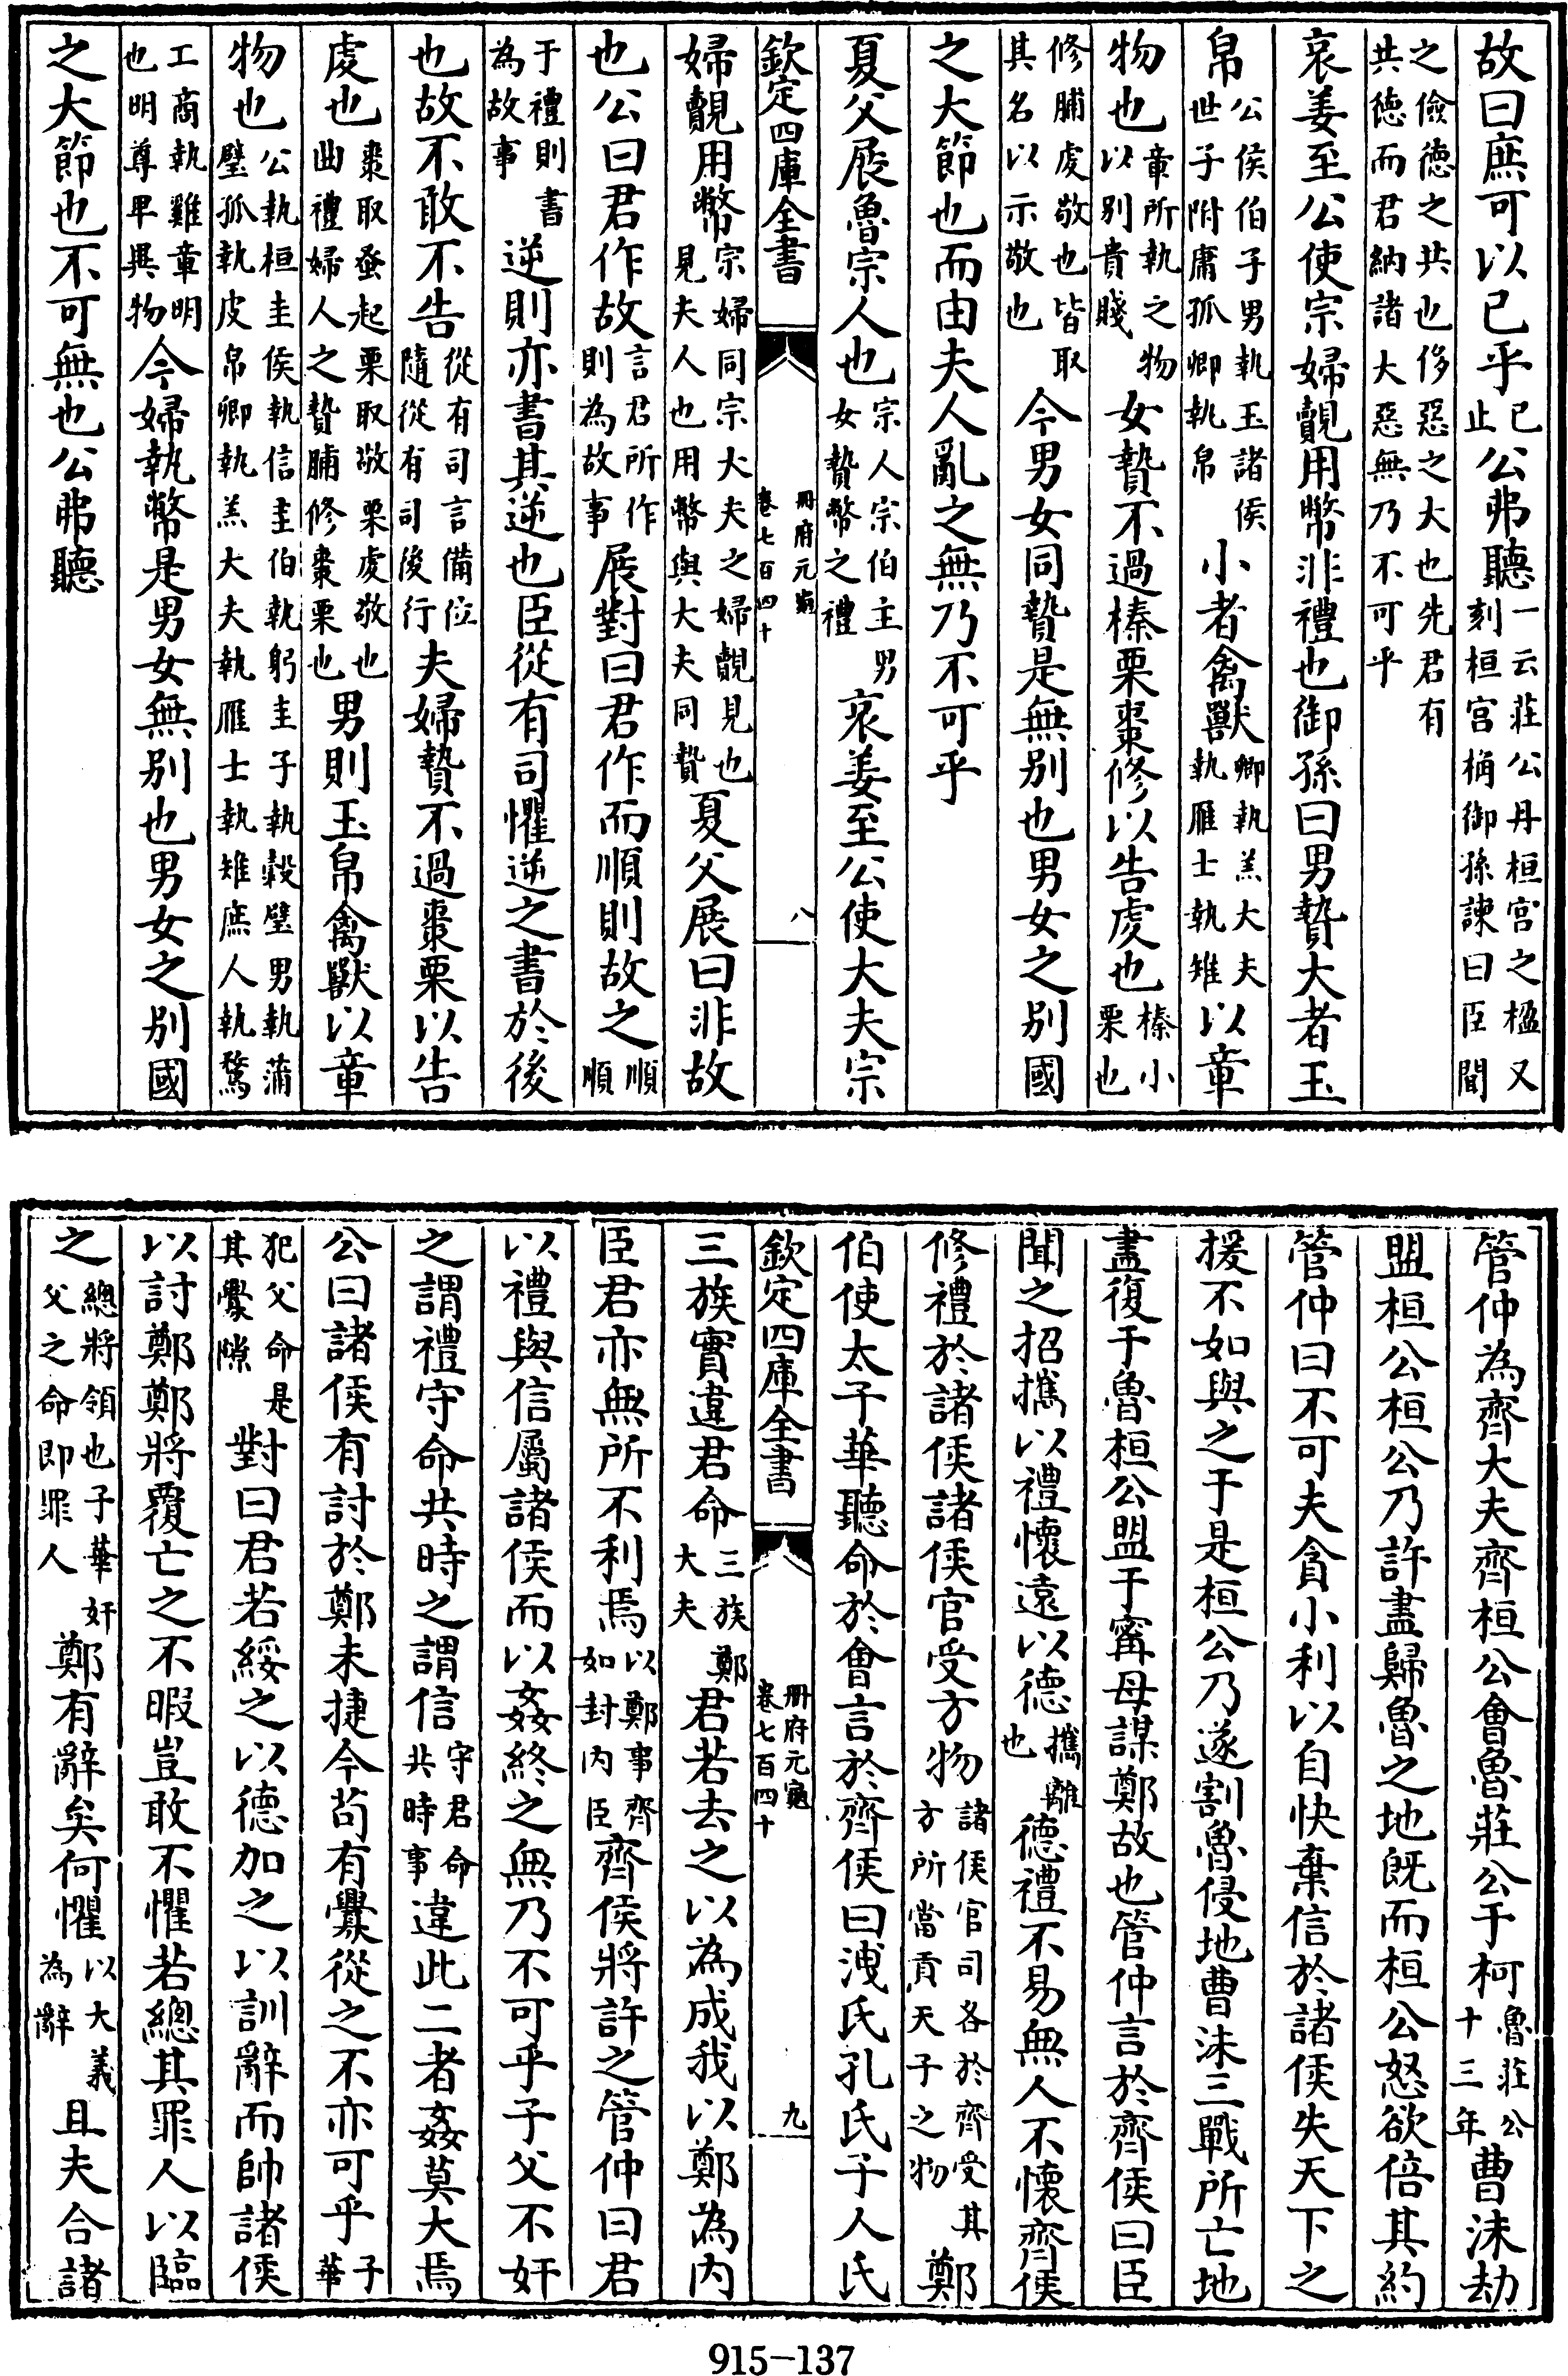 故曰庶可以已乎已止公弗聽一云莊公丹桓宮之楹又刻桓宮桷御孫諫曰臣聞
之儉德之共也侈惡之大也先君有共德而君納諸大惡無乃不可乎
哀姜至公使宗婦覿用幣非禮也御孫曰男贄大者玉
帛公侯伯子男執玉諸侯世子附庸孤卿執帛小者禽獸卿執羔大夫執雁士執雉以章
物也章所執之物以别貴賤女贄不過榛栗棗修以告虔也榛小栗也
修脯虔敬也皆取其名以示敬也今男女同贄是無别也男女之别國
之大節也而由夫人亂之無乃不可乎
夏父展魯宗人也宗人宗伯主男女贄幣之禮哀姜至公使大夫宗
欽定四庫全書
冊府元龜卷七百四十
八
婦覿用幣宗婦同宗大夫之婦覿見也見夫人也用幣與大夫同贄夏父展曰非故
也公曰君作故言君所作則為故事展對曰君作而順則故之順順
于禮則書為故事逆則亦書其逆也臣從有司懼逆之書於後
也故不敢不告從有司言備位隨從有司後行夫婦贄不過棗栗以告
虔也棗取蚤起栗取敬栗虔敬也曲禮婦人之贄脯修棗栗也男則玉帛禽獸以章
物也公執桓圭侯執信圭伯執躬圭子執穀璧男執蒲璧孤執皮帛卿執羔大夫執雁士執雉庶人執鶩
工商執雞章明也明尊卑異物今婦執幣是男女無别也男女之别國
之大節也不可無也公弗聽
管仲為齊大夫齊桓公會魯莊公于柯魯莊公十三年曹沬劫
盟桓公桓公乃許盡歸魯之地既而桓公怒欲倍其約
管仲曰不可夫貪小利以自快棄信於諸侯失天下之
援不如與之于是桓公乃遂割魯侵地曹沬三戰所亡地
盡復于魯桓公盟于甯母謀鄭故也管仲言於齊侯曰臣
聞之招攜以禮懷遠以德攜離也德禮不易無人不懷齊侯
修禮於諸侯諸侯官受方物諸侯官司各於齊受其方所當貢天子之物鄭
伯使太子華聽命於會言於齊侯曰洩氏孔氏子人氏
欽定四庫全書
冊府元龜卷七百四十
九
三族實違君命三族鄭大夫君若去之以為成我以鄭為内
臣君亦無所不利焉以鄭事齊如封内臣齊侯將許之管仲曰君
以禮與信屬諸侯而以姦終之無乃不可乎子父不奸
之謂禮守命共時之謂信守君命共時事違此二者姦莫大焉
公曰諸侯有討於鄭未捷今苟有釁從之不亦可乎子華
犯父命是其釁隙對曰君若綏之以德加之以訓辭而帥諸侯
以討鄭鄭將覆亡之不暇豈敢不懼若總其罪人以臨
之總將領也子華奸父之命即罪人鄭有辭矣何懼以大義為辭且夫合諸
915-137